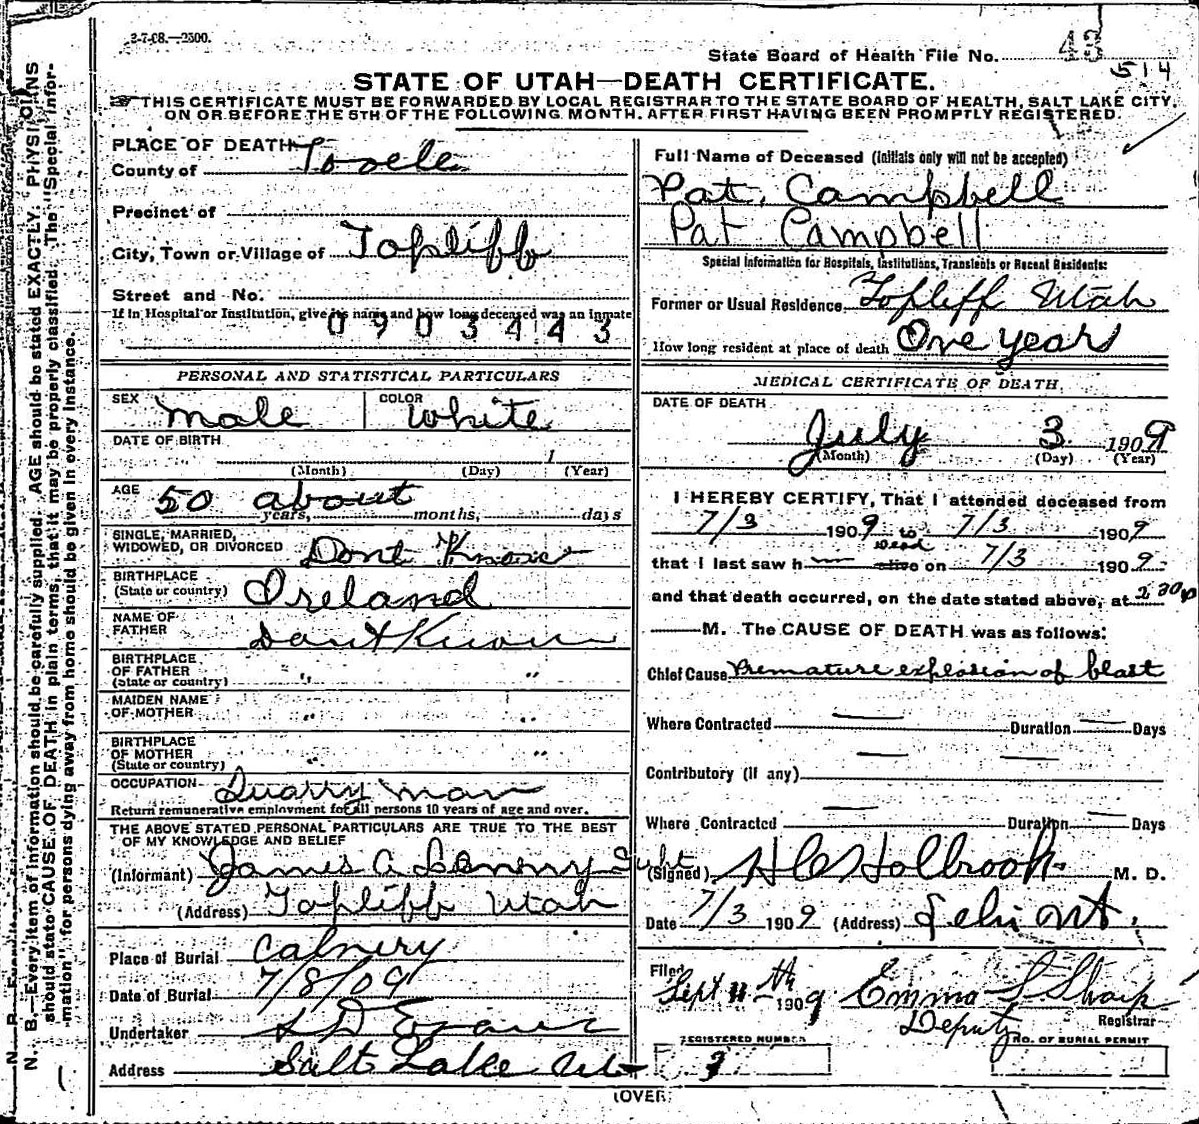 2-7-08.—2500.
State Board of Health File No. 43
514
STATE OF UTAH—DEATH CERTIFICATE.
THIS CERTIFICATE MUST BE FORWARDED BY LOCAL REGISTRAR TO THE STATE BOARD OF HEALTH, SALT LAKE CITY,
ON OR BEFORE THE 5TH OF THE FOLLOWING MONTH. AFTER FIRST HAVING BEEN PROMPTLY REGISTERED.
N. B.—Every item of information should be carefully supplied. AGE should be stated EXACTLY. PHYSICIANS
should state CAUSE OF DEATH in plain terms, that it may be properly classified. The "Special Infor-
mation" for persons dying away from home should be given in every instance.
PLACE OF DEATH
County of Tooele
Precinct of
City, Town or Village of Topliff
Street and No.
If in Hospital or Institution, give its name and how long deceased was an inmate
0903443
PERSONAL AND STATISTICAL PARTICULARS
SEX male COLOR White
DATE OF BIRTH
(Month) (Day) 1 (Year)
AGE 50 about
years, months, days
SINGLE, MARRIED,
WIDOWED, OR DIVORCED Dont Know
BIRTHPLACE
(State or country) Ireland
NAME OF
FATHER Dont Know
BIRTHPLACE
OF FATHER
(State or country) " "
MAIDEN NAME
OF MOTHER " "
BIRTHPLACE
OF MOTHER
(State or country) " "
OCCUPATION Quarry Man
Return remunerative employment for all persons 10 years of age and over.
THE ABOVE STATED PERSONAL PARTICULARS ARE TRUE TO THE BEST
OF MY KNOWLEDGE AND BELIEF
(Informant) James A Supt
(Address) Topliff Utah
Place of Burial Calvery
Date of Burial 7/8/09
Undertaker S D Evans
Address Salt Lake Ut
Full Name of Deceased (Initials only will not be accepted)
Pat. Campbell
Pat Campbell
Special Information for Hospitals, Institutions, Transients or Recent Residents:
Former or Usual Residence Topliff Utah
How long resident at place of death One year
MEDICAL CERTIFICATE OF DEATH.
DATE OF DEATH
July 3 1909
(Month) (Day) (Year)
I HEREBY CERTIFY, That I attended deceased from
7/3 1909 to 7/3 1909
Dead
that I last saw h alive on 7/3 1909
and that death occurred, on the date stated above, at 2 30 p
M. The CAUSE OF DEATH was as follows:
Chief Cause Premature explosion of blast
Where Contracted — Duration — Days
Contributory (if any) — —
Where Contracted — Duration — Days
(Signed) H C Holbrook M. D.
Date 7/3 1909 (Address) Lehi Ut.
Filed
Sept 11th 1909 Emma L Sharp
Deputy Registrar
REGISTERED NUMBER NO. OF BURIAL PERMIT
3
(OVER)